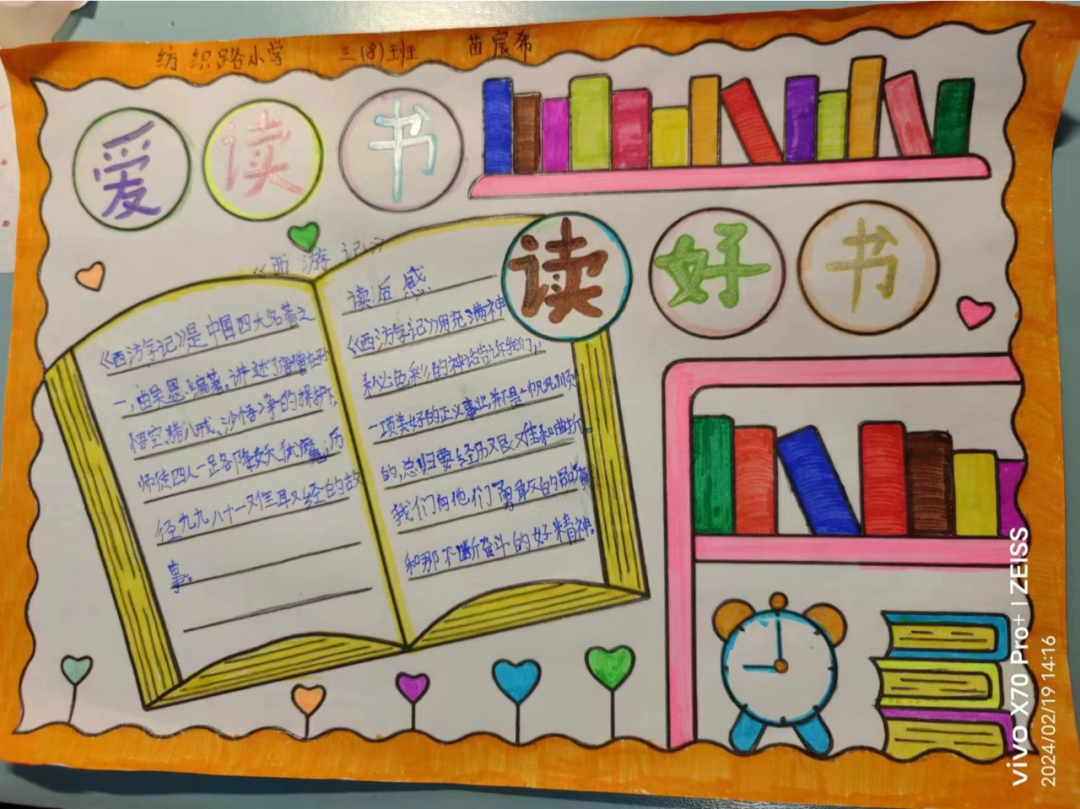 纺织路小学 三(8)班 苗宸希
爱读书
读好书
《西游记》
读后感
《西游记》是中国四大名著之
一,由吴恩 编著。讲述了唐僧在孙
悟空、猪八戒、沙悟净的保护下,
师徒四人一路 降妖 伏魔,历
径九九八十一难取经的故
事。
《西游记》用充满神
秘色彩的神话告诉我们,
一项美好的正义事业并不是一帆风顺
的,总归要经历艰难和曲折。
我们向他们勇敢的
和那不断奋斗的好精神。
vivo X70 Pro+ | ZEISS
2024/02/19 14:16